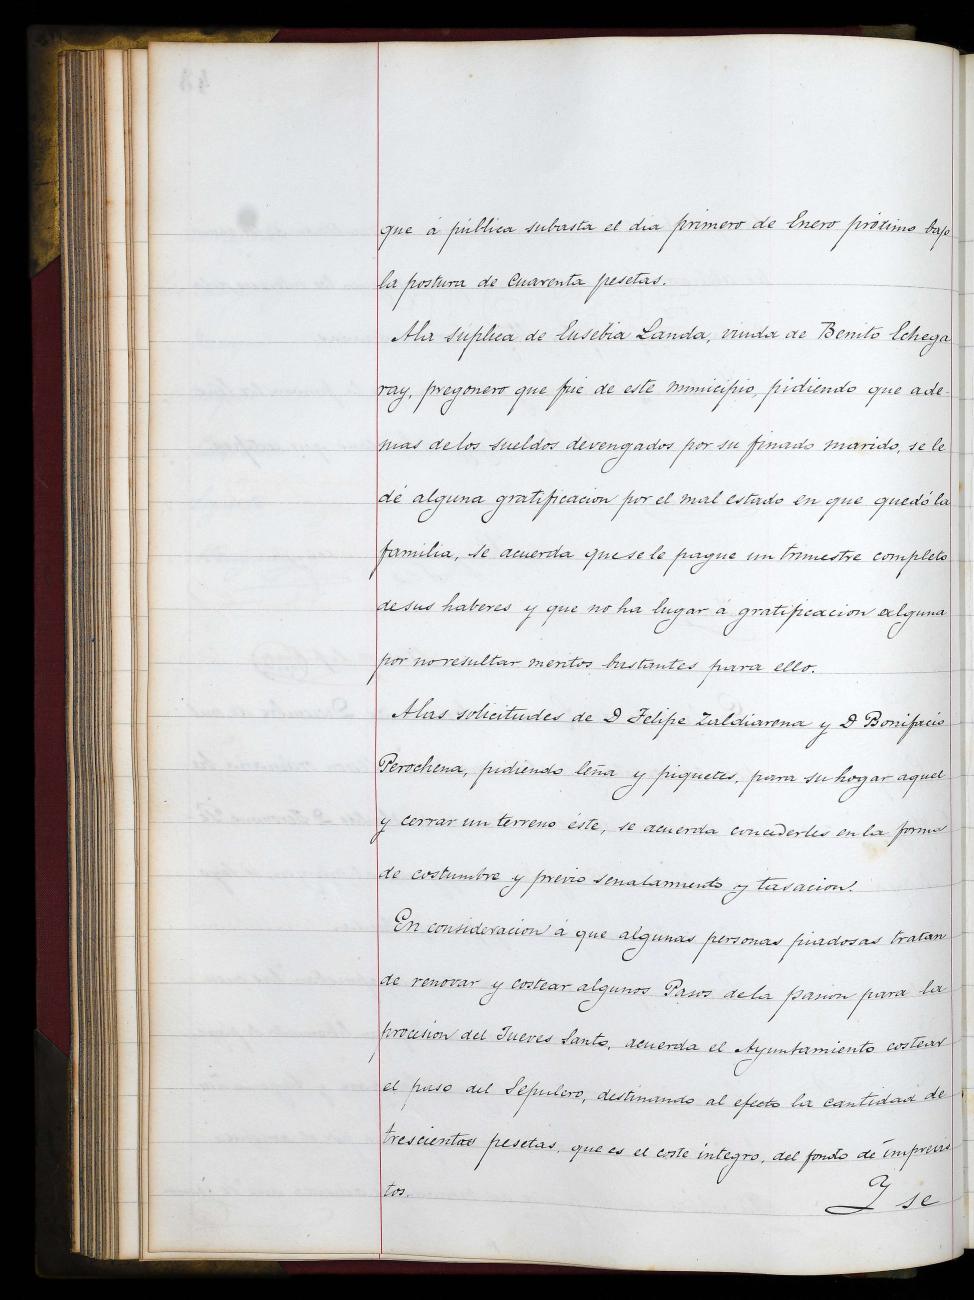 que á pública subasta el dia primero de Enero próximo bajo
la postura de cuarenta pesetas.
Ala súplica de Eusebia Landa, viuda de Benito Echega
ray, pregonero que fué de este municipio, pidiendo que ade-
mas de los sueldos devengados por su finado marido, se le
dé alguna gratificacion por el mal estado en que quedó la
familia, se acuerda que se le pague un trimestre completo
de sus haberes y que no ha lugar á gratificacion alguna
por no resultar meritos bastantes para ello.
Alas solicitudes de D Felipe Zaldiarena y D Bonifacio
Perochena, pidiendo leña y piquetes, para su hogar aquel
y cerrar un terreno éste, se acuerda concederles en la forma
de costumbre y previo senalamiento y tasacion.
En consideracion á que algunas personas piadosas tratan
de renovar y costear algunos Pasos de la pasion para la
procesion del Jueves Santo, acuerda el Ayuntamiento costear
el paso del Sepulcro, destinando al efecto la cantidad de
trescientas pesetas, que es el coste íntegro, del fondo de imprevis
tos.
Y se